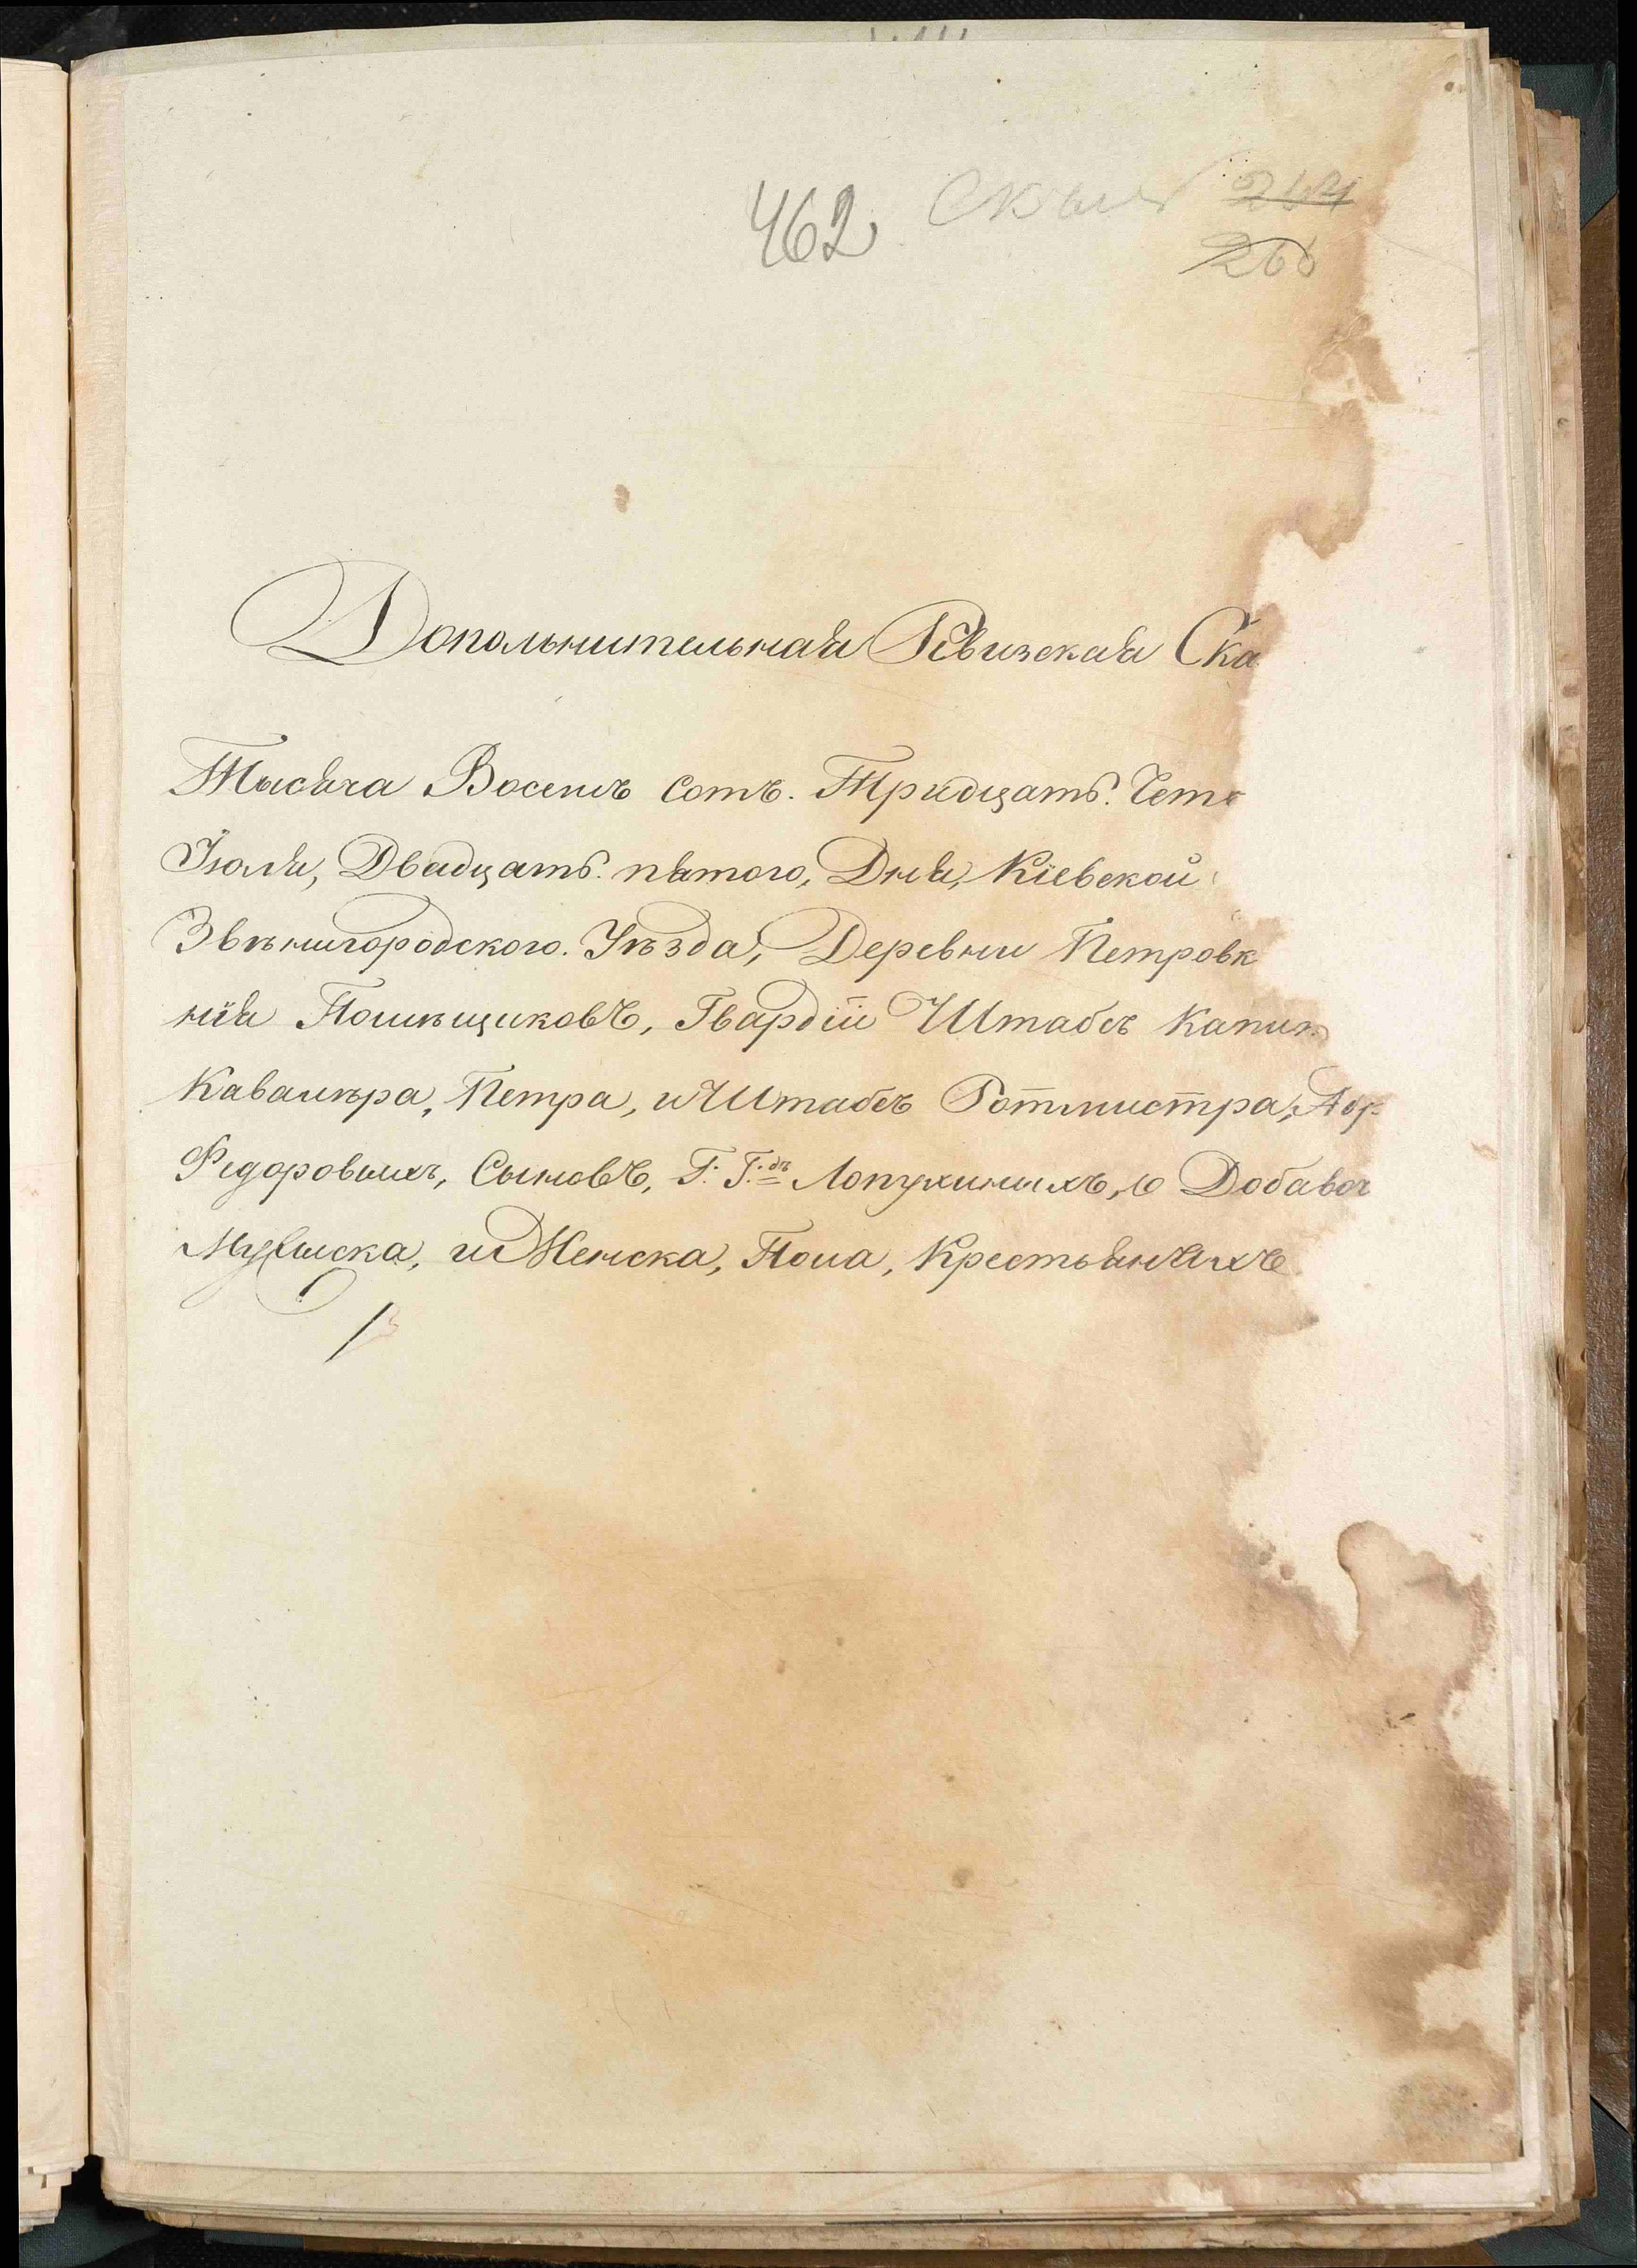 462
266
Допольнительная Ревизская Ска
Тысяча Восемъ Сотъ. Тридцать. Четв
Іюля, Двадцать. пятого, Дня, Кіевской
Звѣнигородского. Уѣзда, Деревни Петровк
нія Помѣщиковъ, Гвардіи Штабсъ Капит
Кавалѣра, Петра, и Штабсъ Ротмистра,
Федоровыхъ, Сыновъ, Г: Г:дъ Лопухиныхъ, о Добавоч
Мужеска, и Женска, Пола, Крестьянахъ